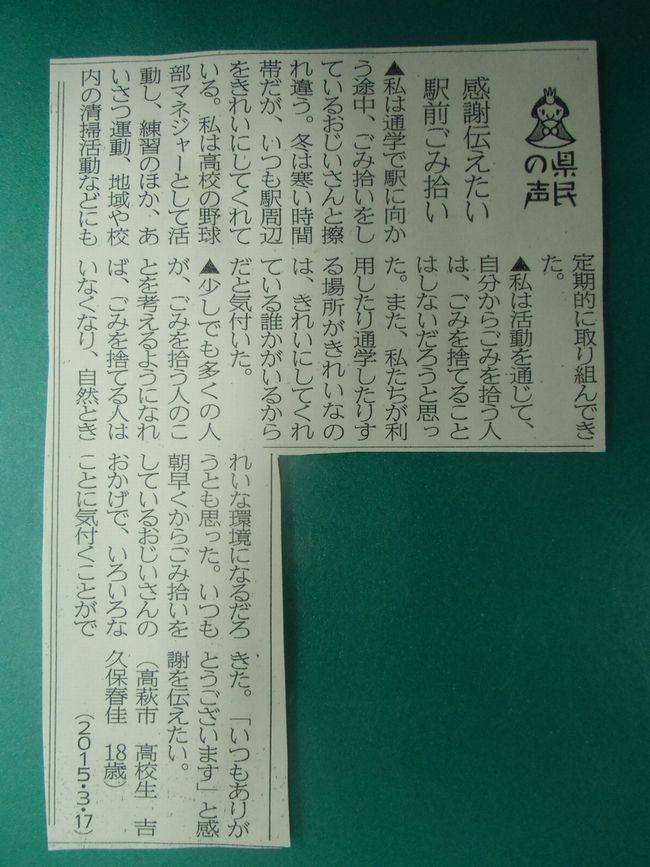 県民
の声
感謝伝えたい
駅前ごみ拾い
▲私は通学で駅に向か
う途中、ごみ拾いをし
ているおじいさんと擦
れ違う。冬は寒い時間
帯だが、いつも駅周辺
をきれいにしてくれて
いる。私は高校の野球
部マネジャーとして活
動し、練習のほか、あ
いさつ運動、地域や校
内の清掃活動などにも
定期的に取り組んでき
た。
▲私は活動を通じて、
自分からごみを拾う人
は、ごみを捨てること
はしないだろうと思っ
た。また、私たちが利
用したり通学したりす
る場所がきれいなの
は、きれいにしてくれ
ている誰かがいるから
だと気付いた。
▲少しでも多くの人
が、ごみを拾う人のこ
とを考えるようになれ
ば、ごみを捨てる人は
いなくなり、自然とき
れいな環境になるだろ
うとも思った。いつも
朝早くからごみ拾いを
しているおじいさんの
おかげで、いろいろな
ことに気付くことがで
きた。「いつもありが
とうございます」と感
謝を伝えたい。
（高萩市　高校生　吉
久保春佳　18歳）
（2015・3・17）